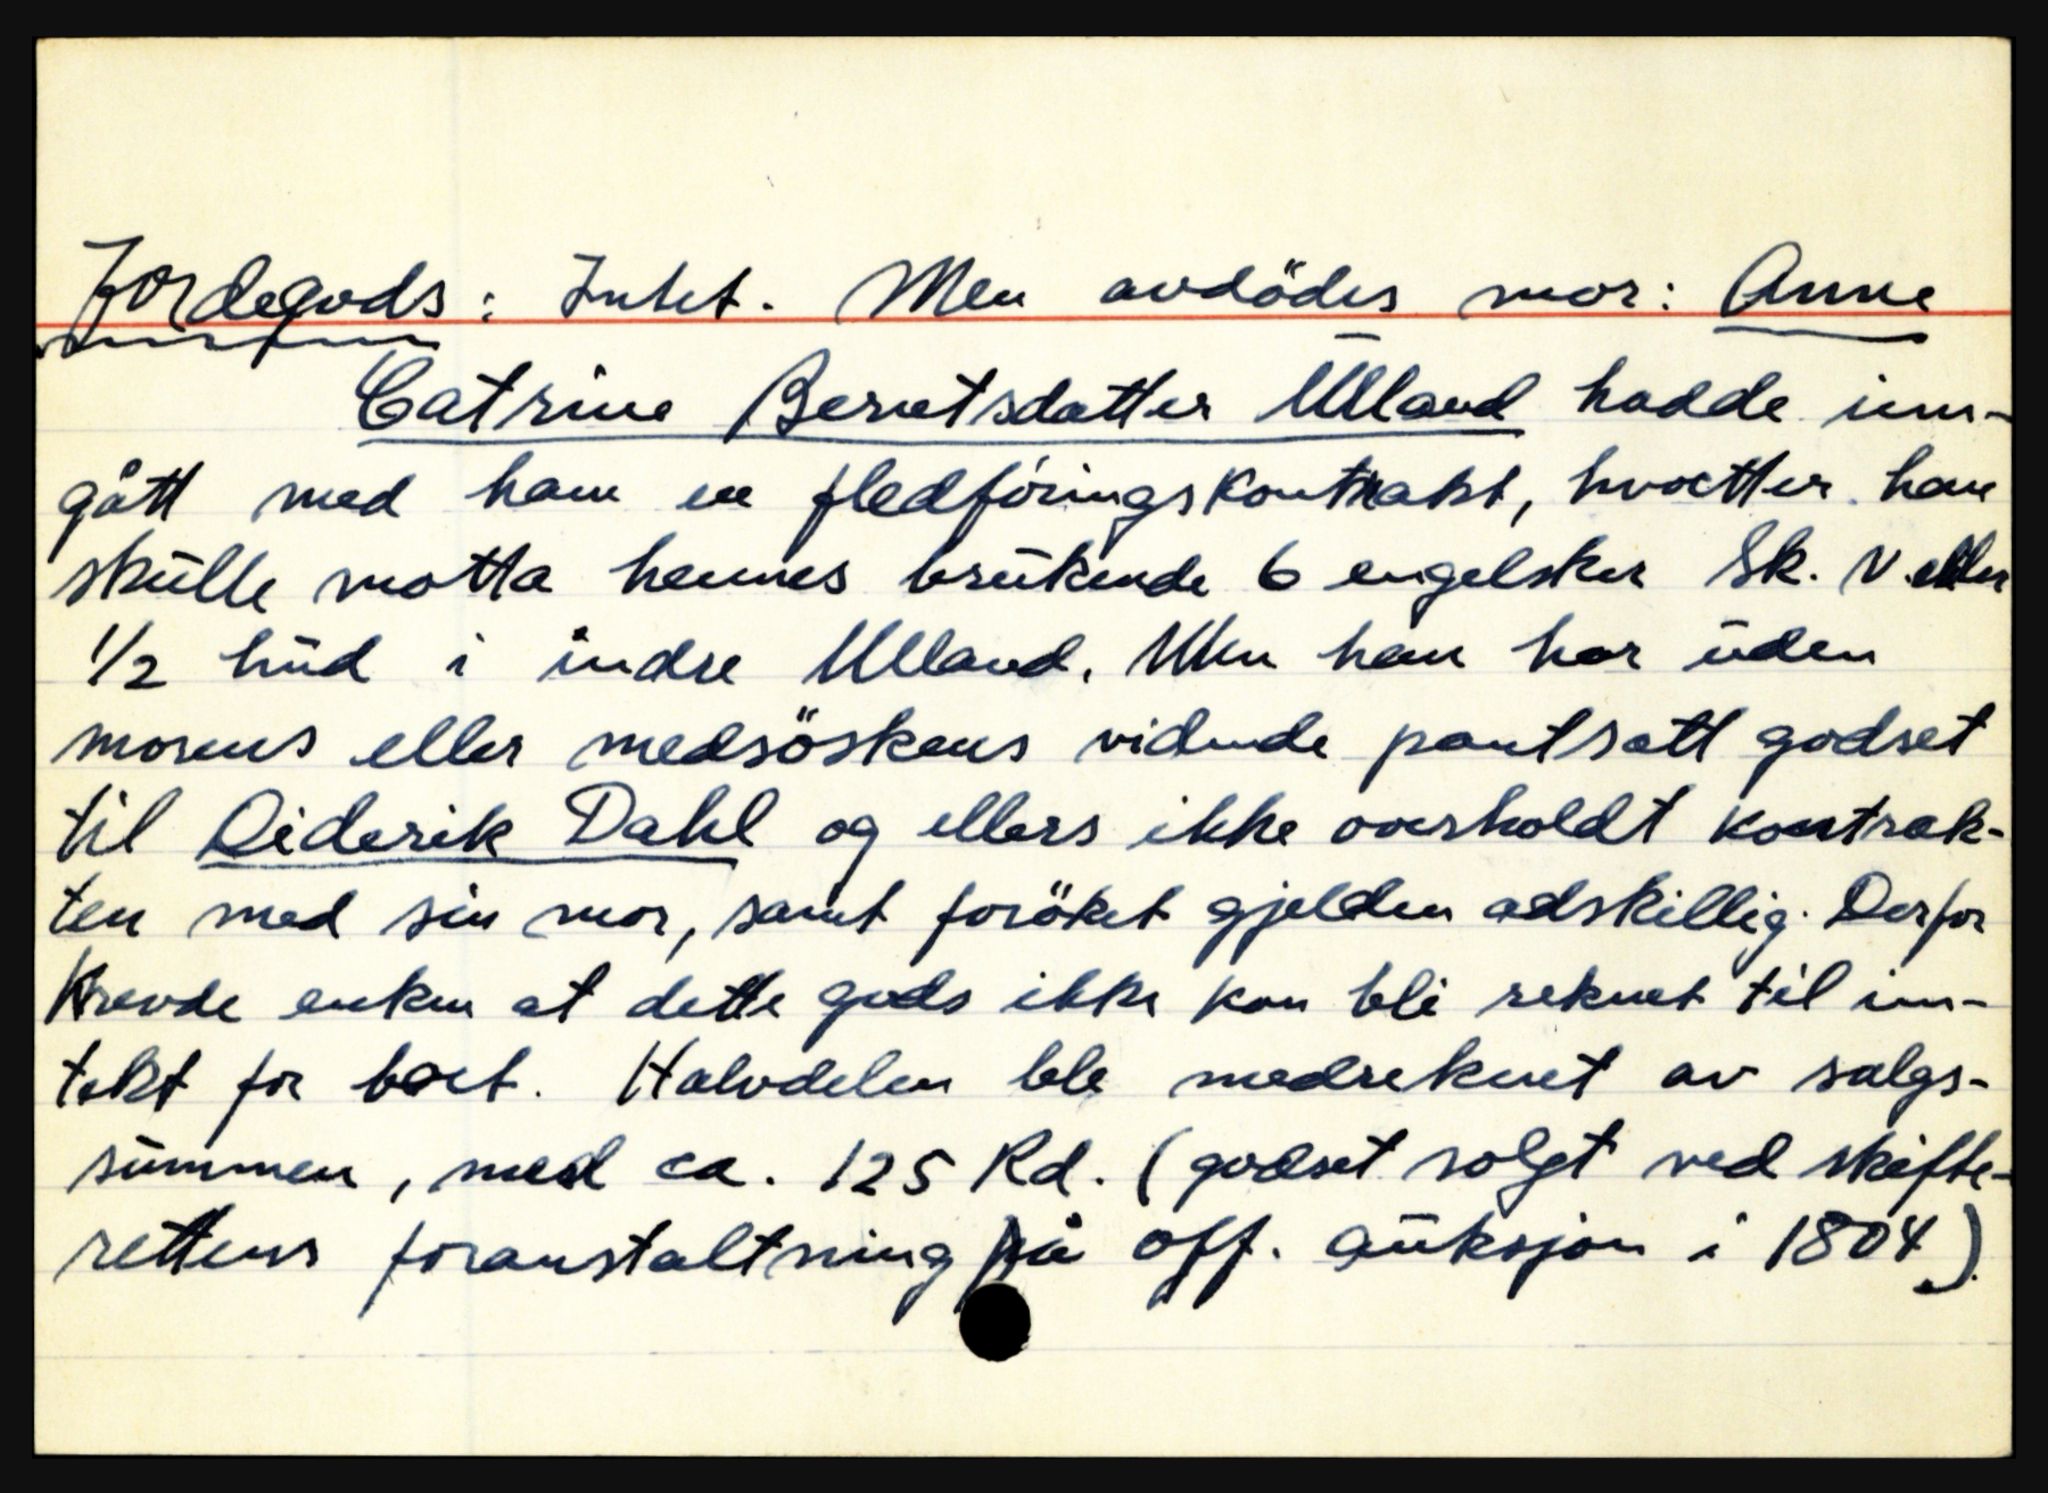 Jordegods: Intet. Men avdödes mor: Anne
Catrine Berntsdatter Ulland hadde inn-
gått med ham en fledføringskontrakt, hvoretter han
skulle motta hennes brukende 6 engelsker Sk. V. eller
1/2 hud i indre Ulland. Men han har uden
morens eller medsöskens vidende pantsatt godset
til Diderik Dahl og ellers ikke overholdt kontrak-
ten med sin mor, samt foröket gjelden adskillig. Derfor
krevde enken at dette gods ikke kan bli reknet til inn-
tekt for boet. Halvdelen ble medreknet av salgs-
summen, med ca. 125 Rd. (godset solgt ved skifte-
rettens foranstaltning på off. auksjon i 1804).